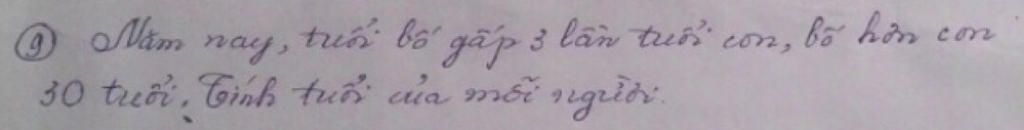 ⑨ Năm nay, tuổi bố gấp 3 lần tuổi con, bố hơn con
30 tuổi. Tính tuổi của mỗi người.